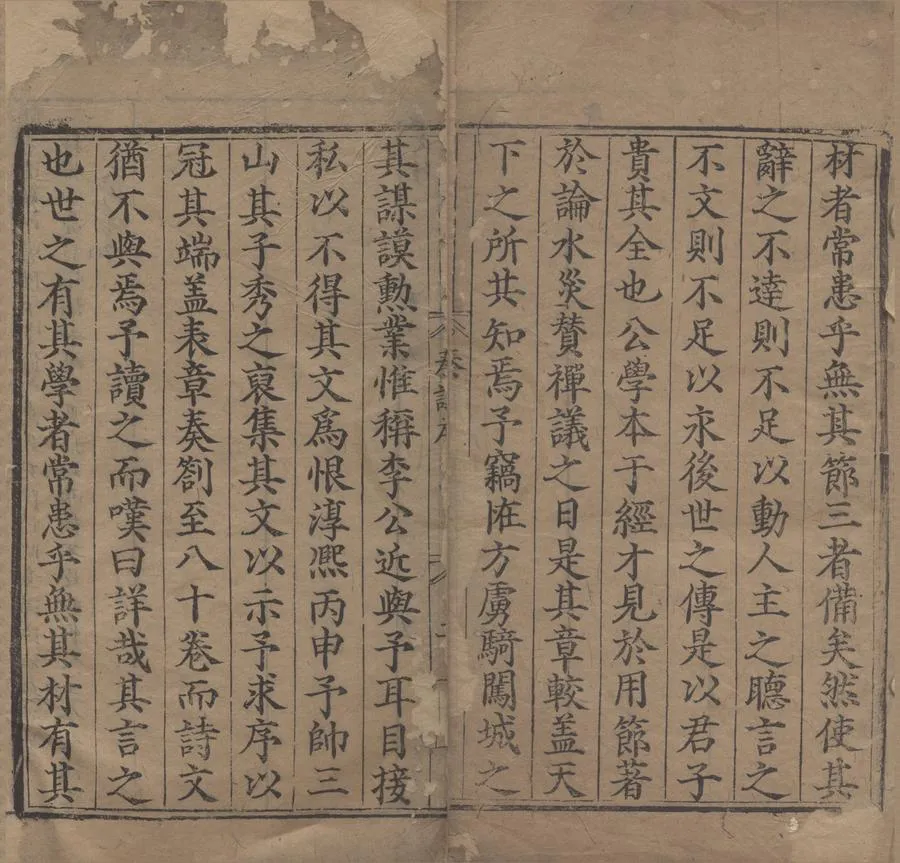 材者常患乎無其節三者備矣然使其
辭之不達則不足以動人主之聽言之
不文則不足以永後世之傳是以君子
貴其全也公學本于經才見於用節著
於論水災賛禪議之日是其章較盖天
下之所共知焉予竊怪方虜騎闖城之
奏議
其謀謨勲業惟稱李公近與予耳目接
私以不得其文爲恨淳熈丙申予帥三
山其子秀之裒集其文以示予求序以
冠其端盖表章奏劄至八十卷而詩文
猶不與焉予讀之而嘆曰詳哉其言之
也世之有其學者常患乎無其材有其